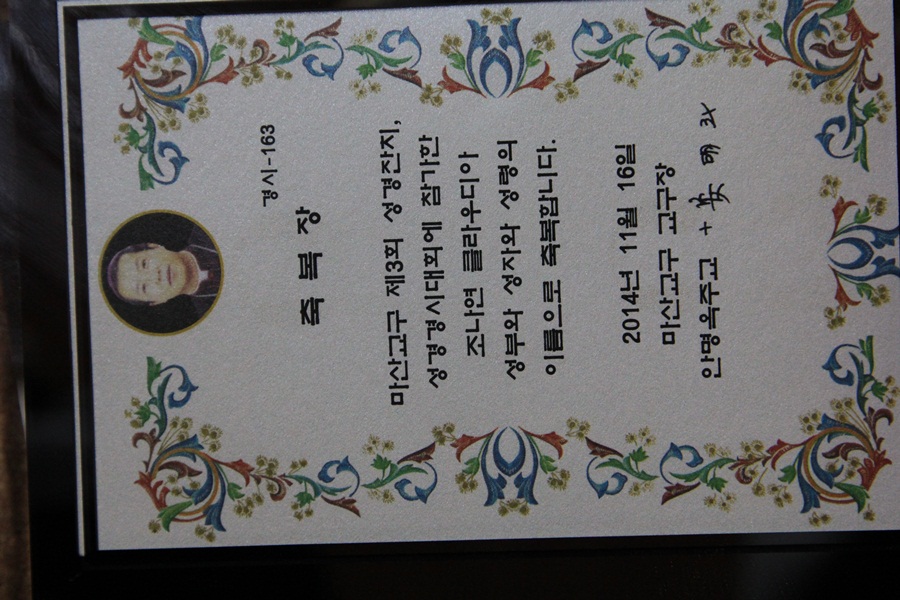 경시-163
축 복 장
마산교구 제3회 성경잔치,
성경경시대회에 참가한
조나연 클라우디아
성부와 성자와 성령의
이름으로 축복합니다.
2014년 11월 16일
마산교구 교구장
안명옥주교 + 安 明